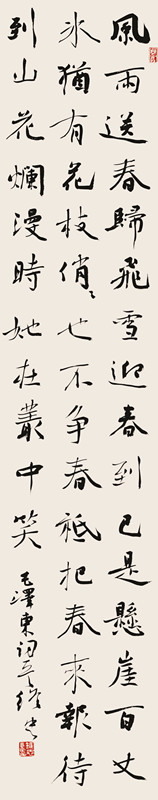 風雨送春歸飛雪迎春到已是懸崖百丈
氷猶有花枝俏〻也不争春祗把春來報待
到山花爛漫時她在叢中笑
毛澤東詞